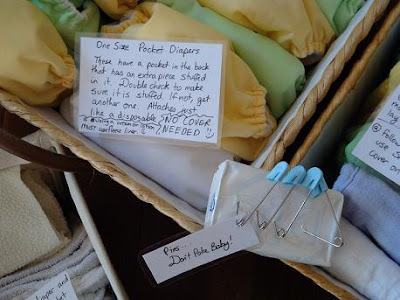 One Size Pocket Diapers
These have a pocket in the back
that has an extra piece stuffed
in it. Double check to make
sure it is stuffed. If not, get
another one. Attaches just
like a disposable. NO COVER
NEEDED
must
Pins...
Don't Poke Baby!
follow
use S
cover on
diaper and